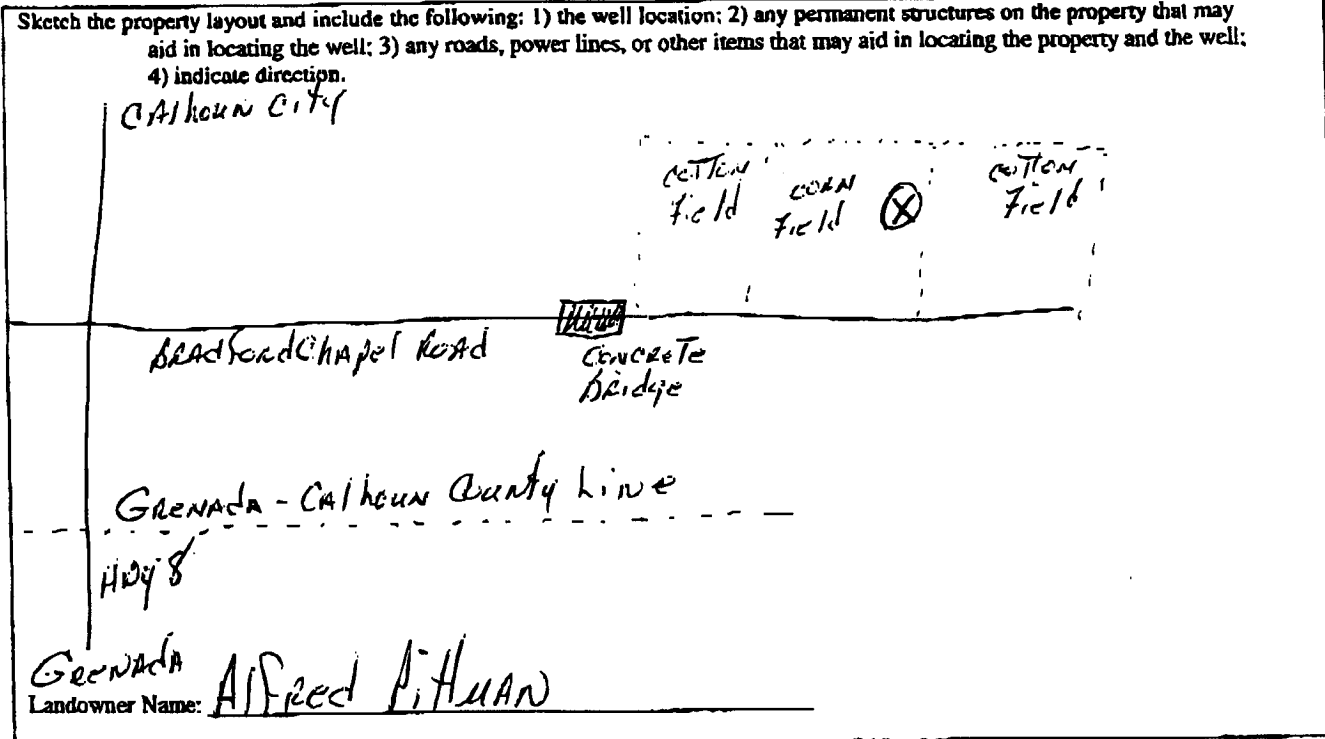 Sketch the property layout and include the following: 1) the well location; 2) any permanent structures on the property that may
aid in locating the well; 3) any roads, power lines, or other items that may aid in locating the property and the well;
4) indicate direction.
CAlhouN City
CoTToN
Field
CORN
Field
X
CoTToN
Field
BRAdfordChApel RoAd
CoNCReTe
BRidge
GReNAdA - CAlhouN CouNty LiNe
Hwy 8
GReNAdA
Landowner Name: AlfRed PittmAN